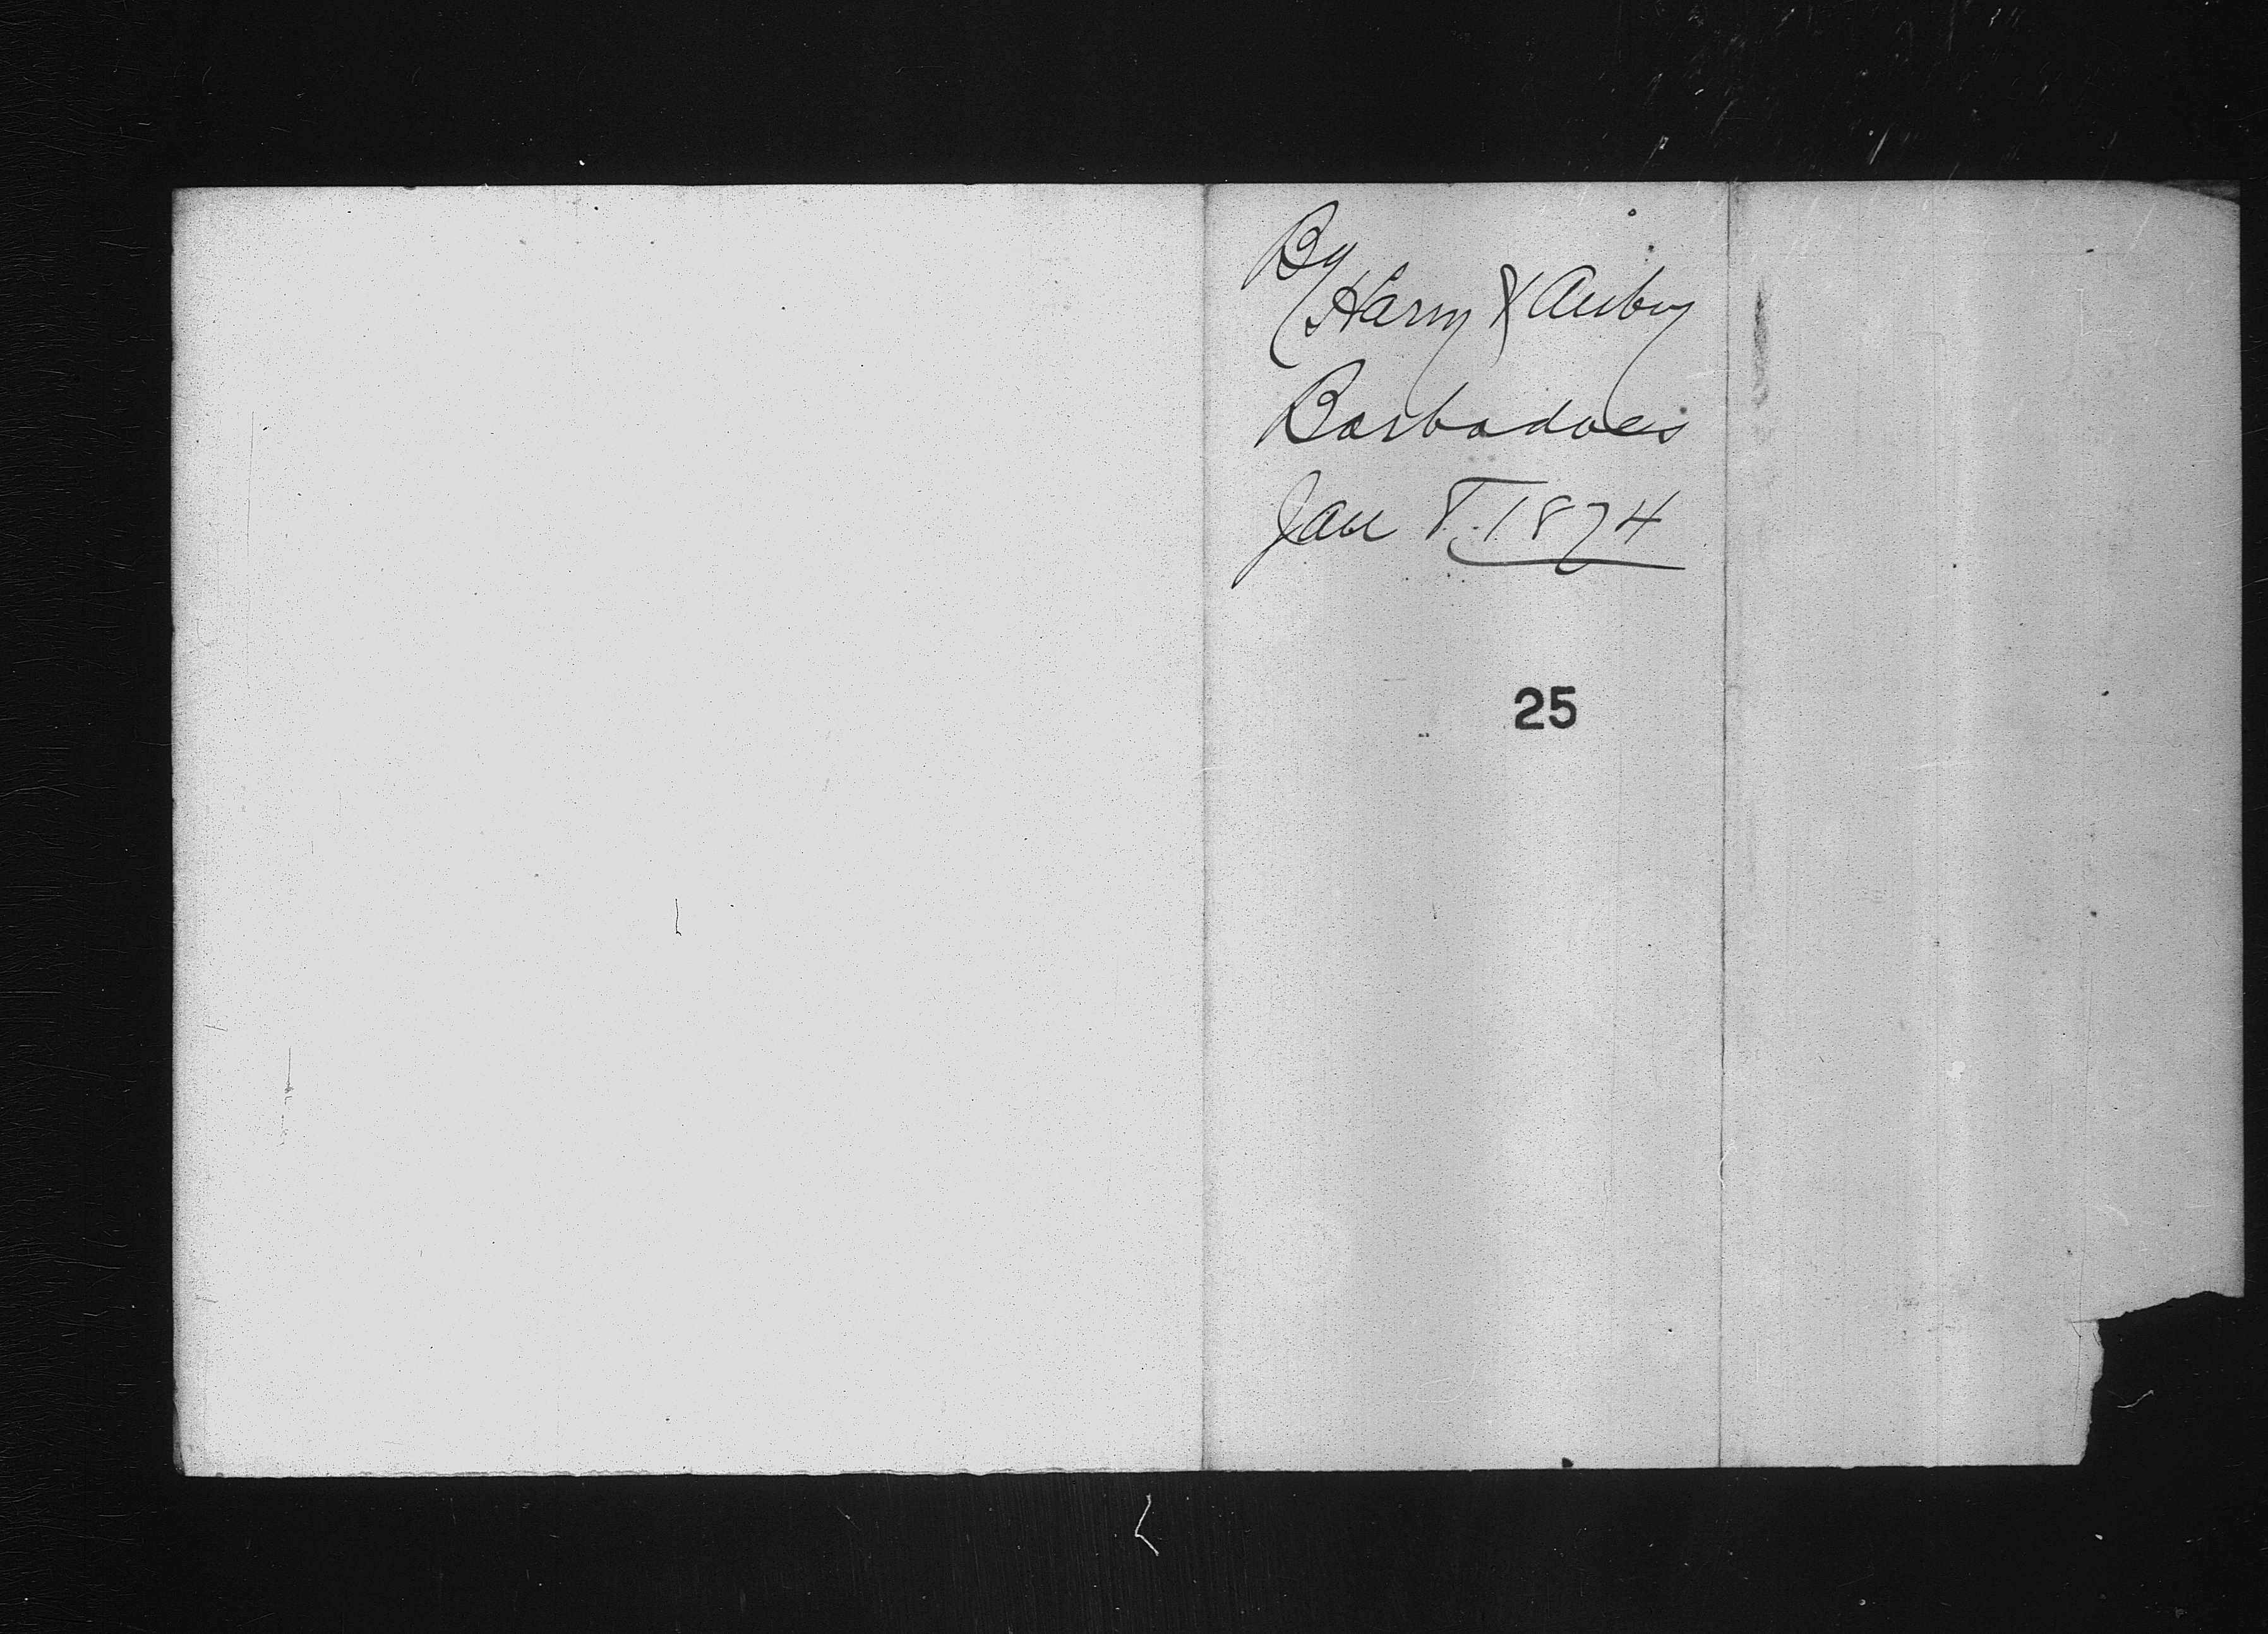 By
Harry & Aubry
Barbadoes
Jan 8. 1874
25